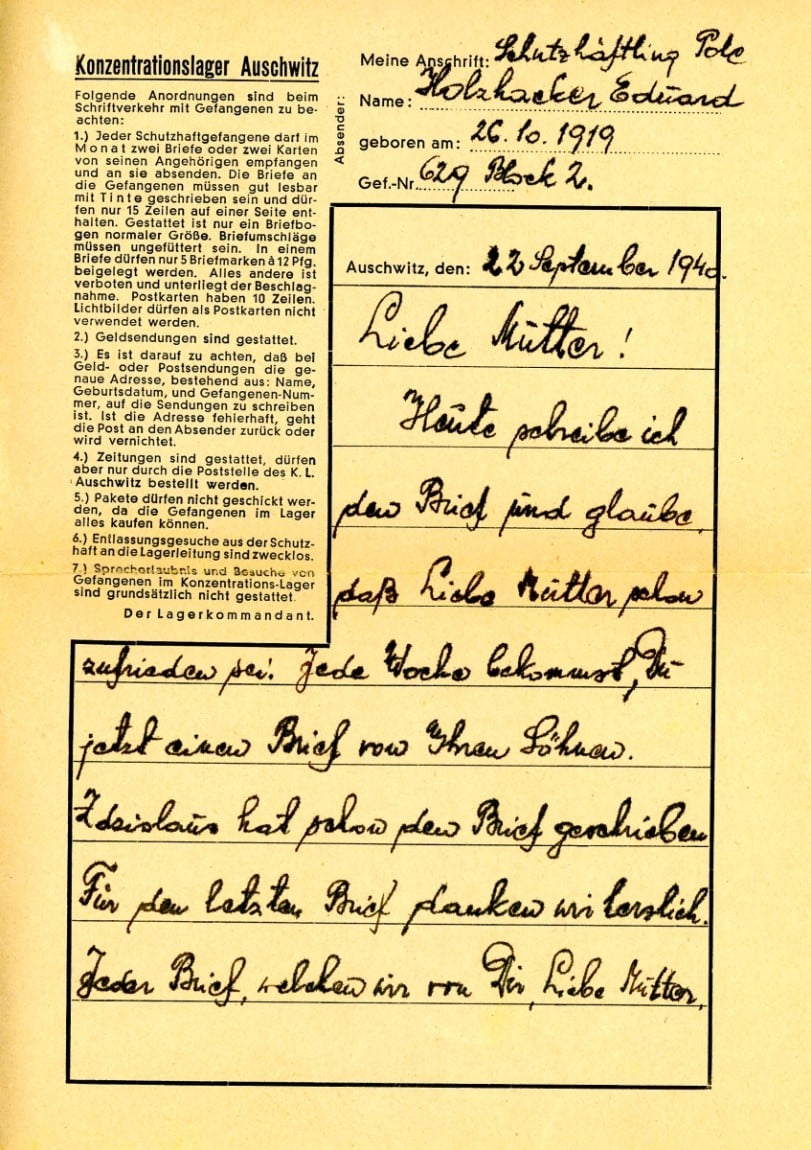 Konzentrationslager Auschwitz
Folgende Anordnungen sind beim
Schriftverkehr mit Gefangenen zu be-
achten:
1.) Jeder Schutzhaftgefangene darf im
Monat zwei Briefe oder zwei Karten
von seinen Angehörigen empfangen
und an sie absenden. Die Briefe an
die Gefangenen müssen gut lesbar
mit Tinte geschrieben sein und dür-
fen nur 15 Zeilen auf einer Seite ent-
halten. Gestattet ist nur ein Briefbo-
gen normaler Größe. Briefumschläge
müssen ungefüttert sein. In einem
Briefe dürfen nur 5 Briefmarken à 12 Pfg.
beigelegt werden. Alles andere ist
verboten und unterliegt der Beschlag-
nahme. Postkarten haben 10 Zeilen.
Lichtbilder dürfen als Postkarten nicht
verwendet werden.
2.) Geldsendungen sind gestattet.
3.) Es ist darauf zu achten, daß bei
Geld- oder Postsendungen die ge-
naue Adresse, bestehend aus: Name,
Geburtsdatum, und Gefangenen-Num-
mer, auf die Sendungen zu schreiben
ist. Ist die Adresse fehlerhaft, geht
die Post an den Absender zurück oder
wird vernichtet.
4.) Zeitungen sind gestattet, dürfen
aber nur durch die Poststelle des K. L.
Auschwitz bestellt werden.
5.) Pakete dürfen nicht geschickt wer-
den, da die Gefangenen im Lager
alles kaufen können.
6.) Entlassungsgesuche aus der Schutz-
haft an die Lagerleitung sind zwecklos.
7.) Sprecherlaubnis und Besuche von
Gefangenen im Konzentrations-Lager
sind grundsätzlich nicht gestattet.
Der Lagerkommandant.
Absender:
Meine Anschrift: Schutzhäftling Pole
Name: Holzhacker Eduard
geboren am: 26. 10. 1919
Gef.-Nr. 629 Block 2.
Auschwitz, den: 22 September 1940.
Liebe Mutter!
Heute schreibe ich
den Brief und glaube,
daß Liebe Mutter schon
zufrieden sei. Jede Woche bekommst, Du
jetzt einen Brief von Ihren Söhnen.
Zdzislaus hat schon den Brief geschrieben
Für den letzten Brief danken wir herzlich.
Jeder Brief, welchen wir von Dir, Liebe Mutter,